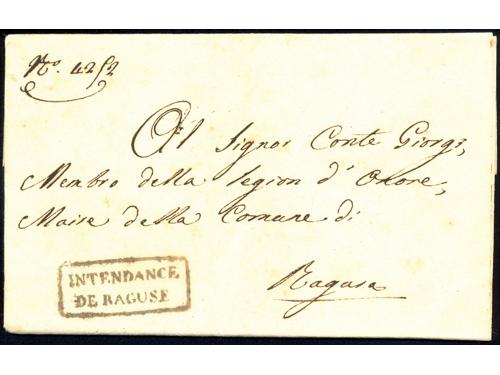 No. 4252
Al Signor Conte Giorgi,
Membro della Legion d'Onore,
Maire della Comune di
Ragusa
INTENDANCE
DE RAGUSE